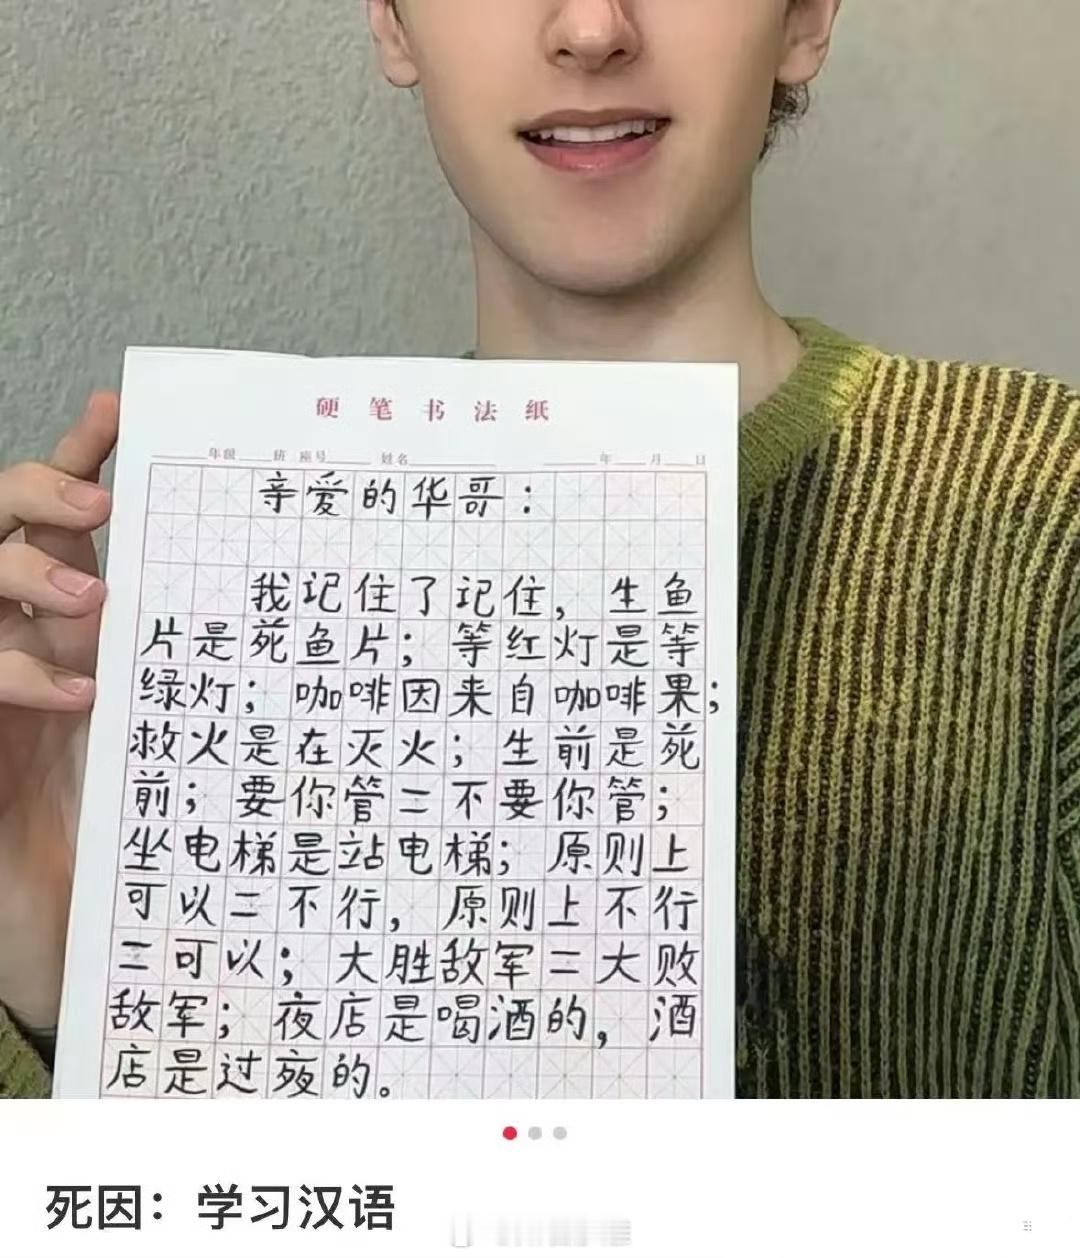 硬笔书法纸
年级 班 座号 姓名 年 月 日
亲爱的华哥：
我记住了记住，生鱼
片是死鱼片；等红灯是等
绿灯；咖啡因来自咖啡果；
救火是在灭火；生前是死
前；要你管=不要你管；
坐电梯是站电梯；原则上
可以=不行，原则上不行
=可以；大胜敌军=大败
敌军；夜店是喝酒的，酒
店是过夜的。
死因：学习汉语